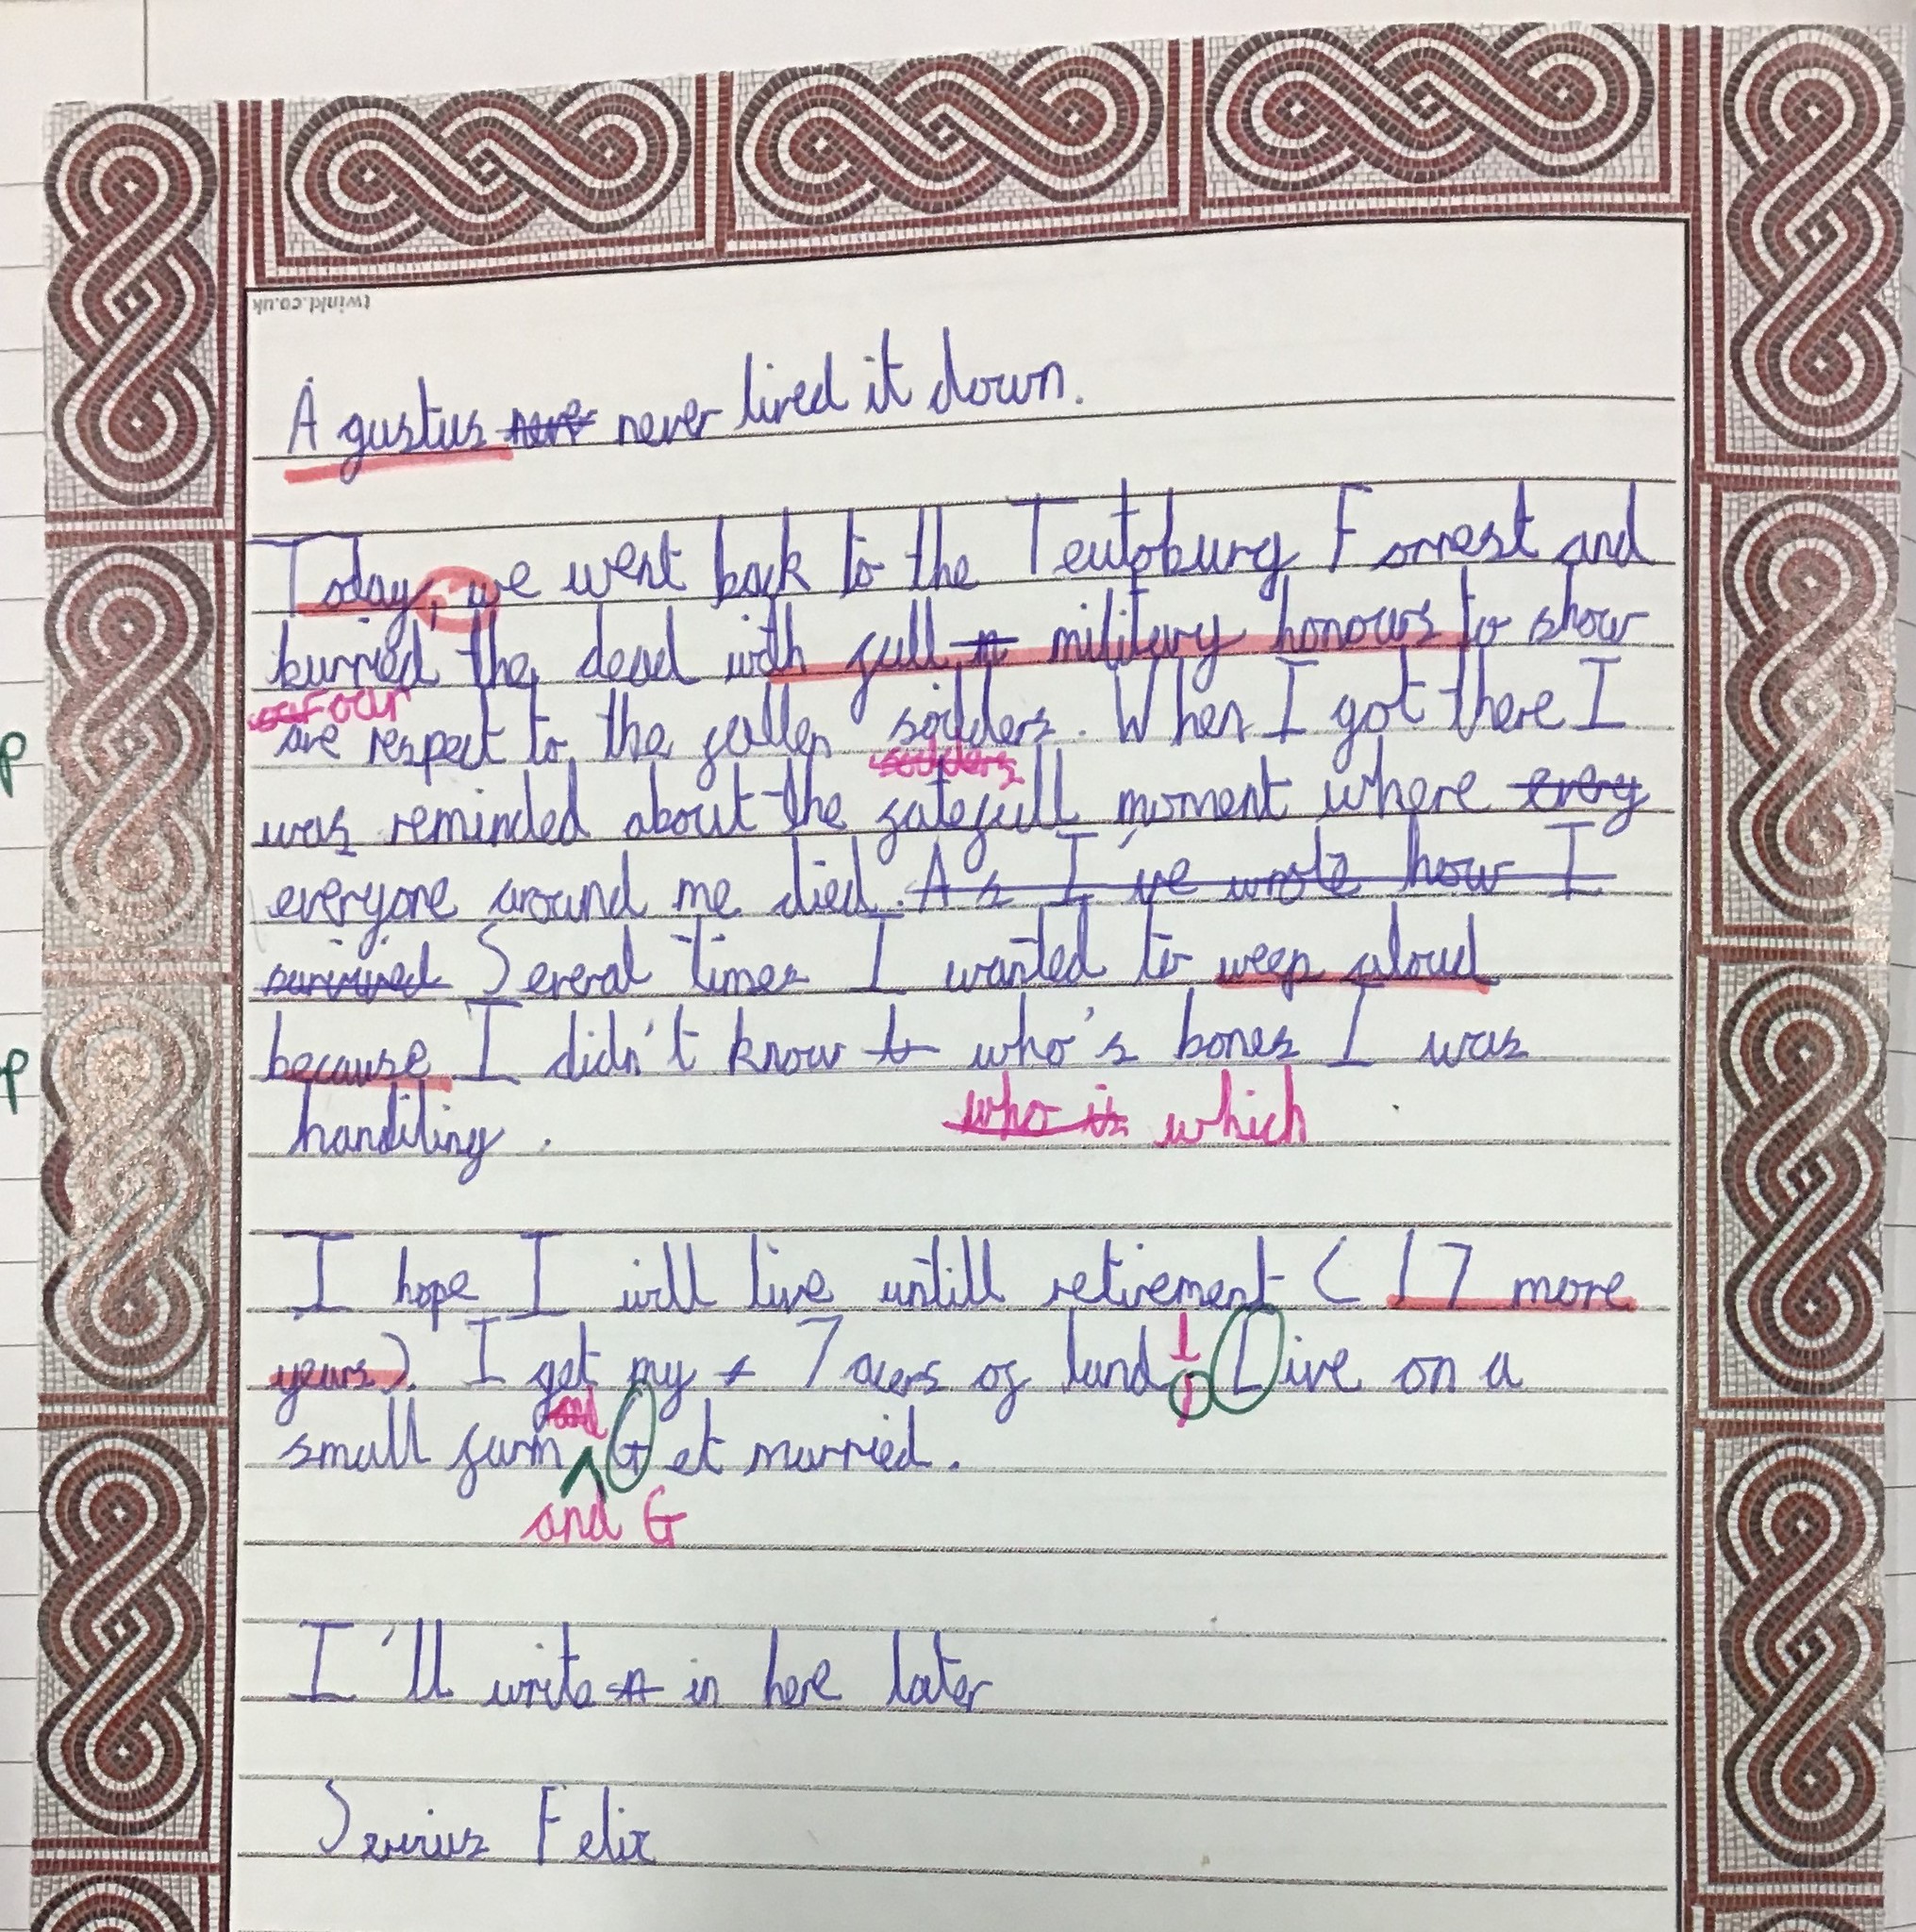 twinkl.co.uk
A gustus never lived it down.
Today, we went back to the Teutoburg Forrest and
burried the dead with full military honours to show
our
are respect to the fallen soilders. When I got there I
was reminded about the fatefull moment where every
everyone around me died. As I've wrote how I
survived Several times I wanted to weep aloud
because I didn't know who's bones I was
who is which
handiling.
I hope I will live untill retirement (17 more
years). I get my 7 acers of land, Live on a
and
small farm Get married.
and G
I'll write in here later
Felix
p
p